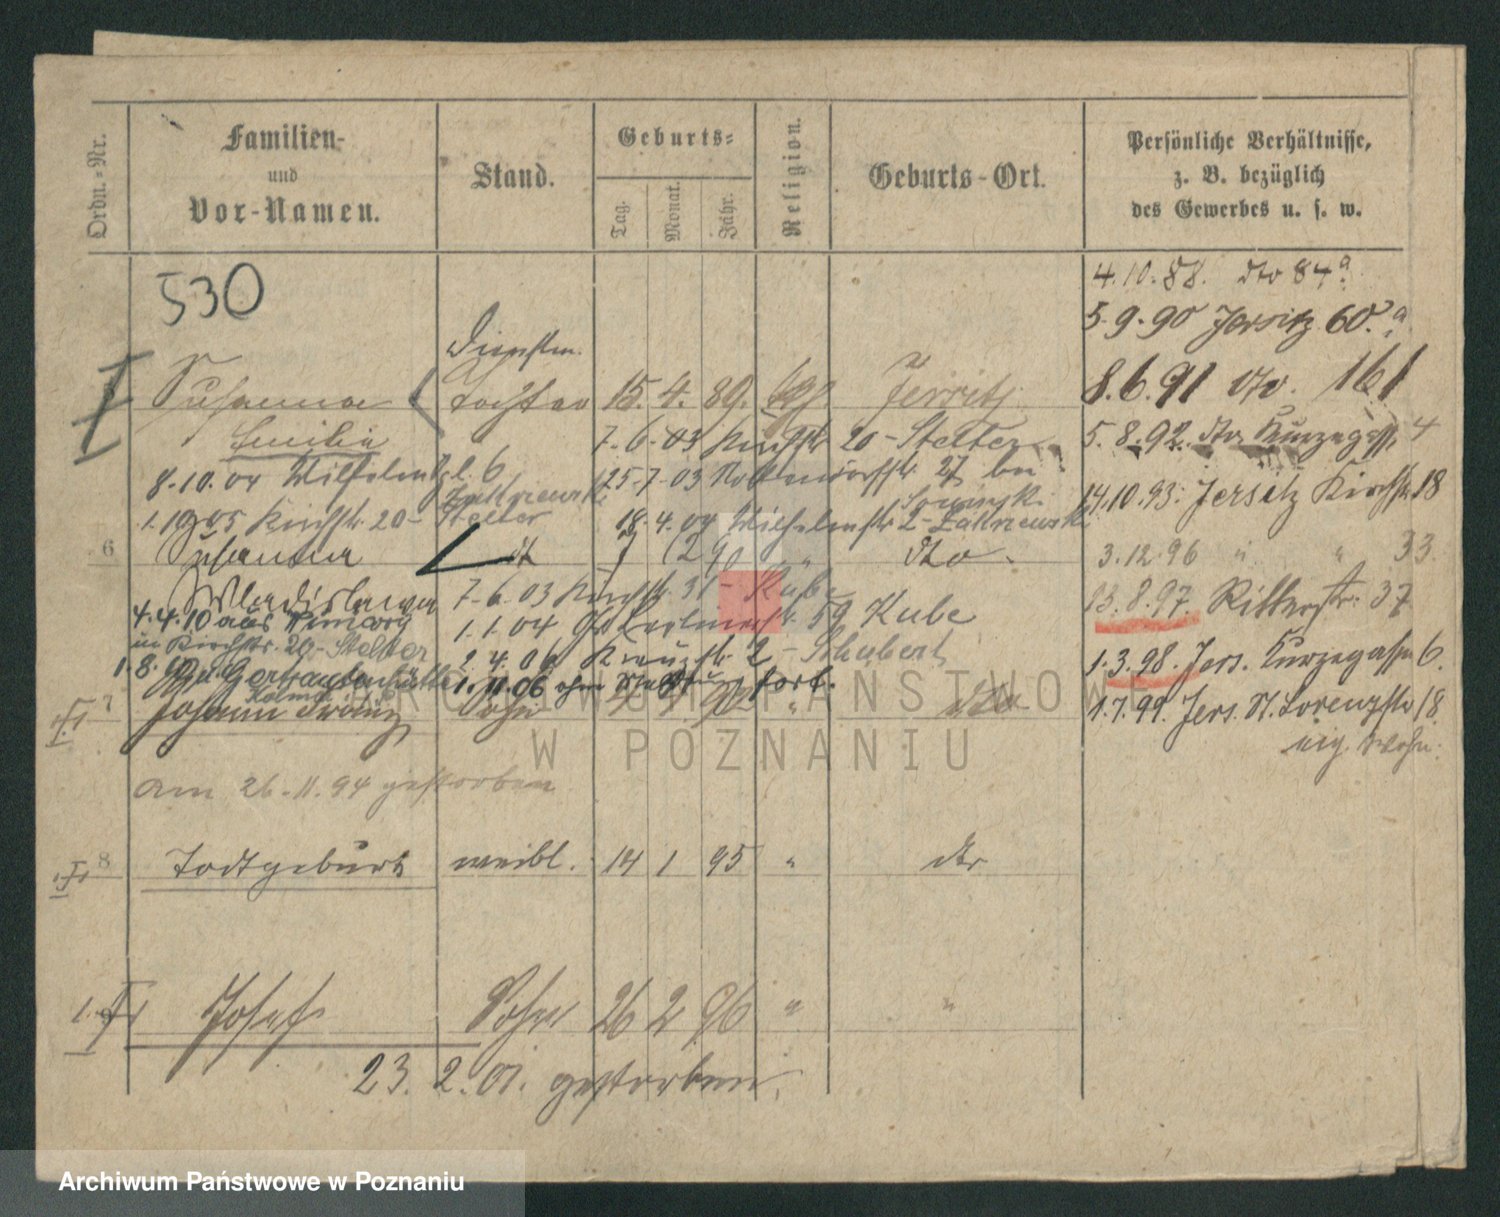 Ordn.-Nr.
Familien-
und
Vor-Namen.
Stand.
Geburts-
Tag.
Monat.
Jahr.
Religion.
Geburts-Ort.
Persönliche Verhältnisse,
z. B. bezüglich
des Gewerbes u. s. w.
530
4.10.88. dto 84a
5.9.90 Jersitz 60.a
8.6.91 dto. 161
5.8.92. dto Kurzegasse 4
14.10.93. Jersitz Kirchstr. 18
3.12.96 " " 33
13.8.97 Ritterstr. 37
1.3.98. Jers. Kurzegasse 6.
1.7.99. Jers. St. Lorenzstr 18.
eig. Wohn.
Dienstm.
Susanna Tochter 15. 4. 89. Jersitz
Emilie
7-6-03 Kirchstr 20- Stelter
8-10.04 Wilhelmpl. 6
25-7-03 27 bei
1.1905 Kirchstr. 20- Stelter
18.4.04 Wilhelmstr 2- Zakrzewski
6 Susanna dto
Wladislawa
7-6.03 Kirchstr. 31- Kube
4.4.10 aus
in Kirchstr. 20- Stelter
1.1.04 59 Kube
2.4.06 Kreuzstr. 2- Schubert
1.11.06 ohne Meldung fort.
7 Johann Franz Sohn dto
am 26.11.94 gestorben
8 Todtgeburt weibl. 14 1 95 " dto
Josef Sohn 26 2 96 " "
23.2.01. gestorben.
ARCHIWUM PAŃSTWOWE
W POZNANIU
Archiwum Państwowe w Poznaniu